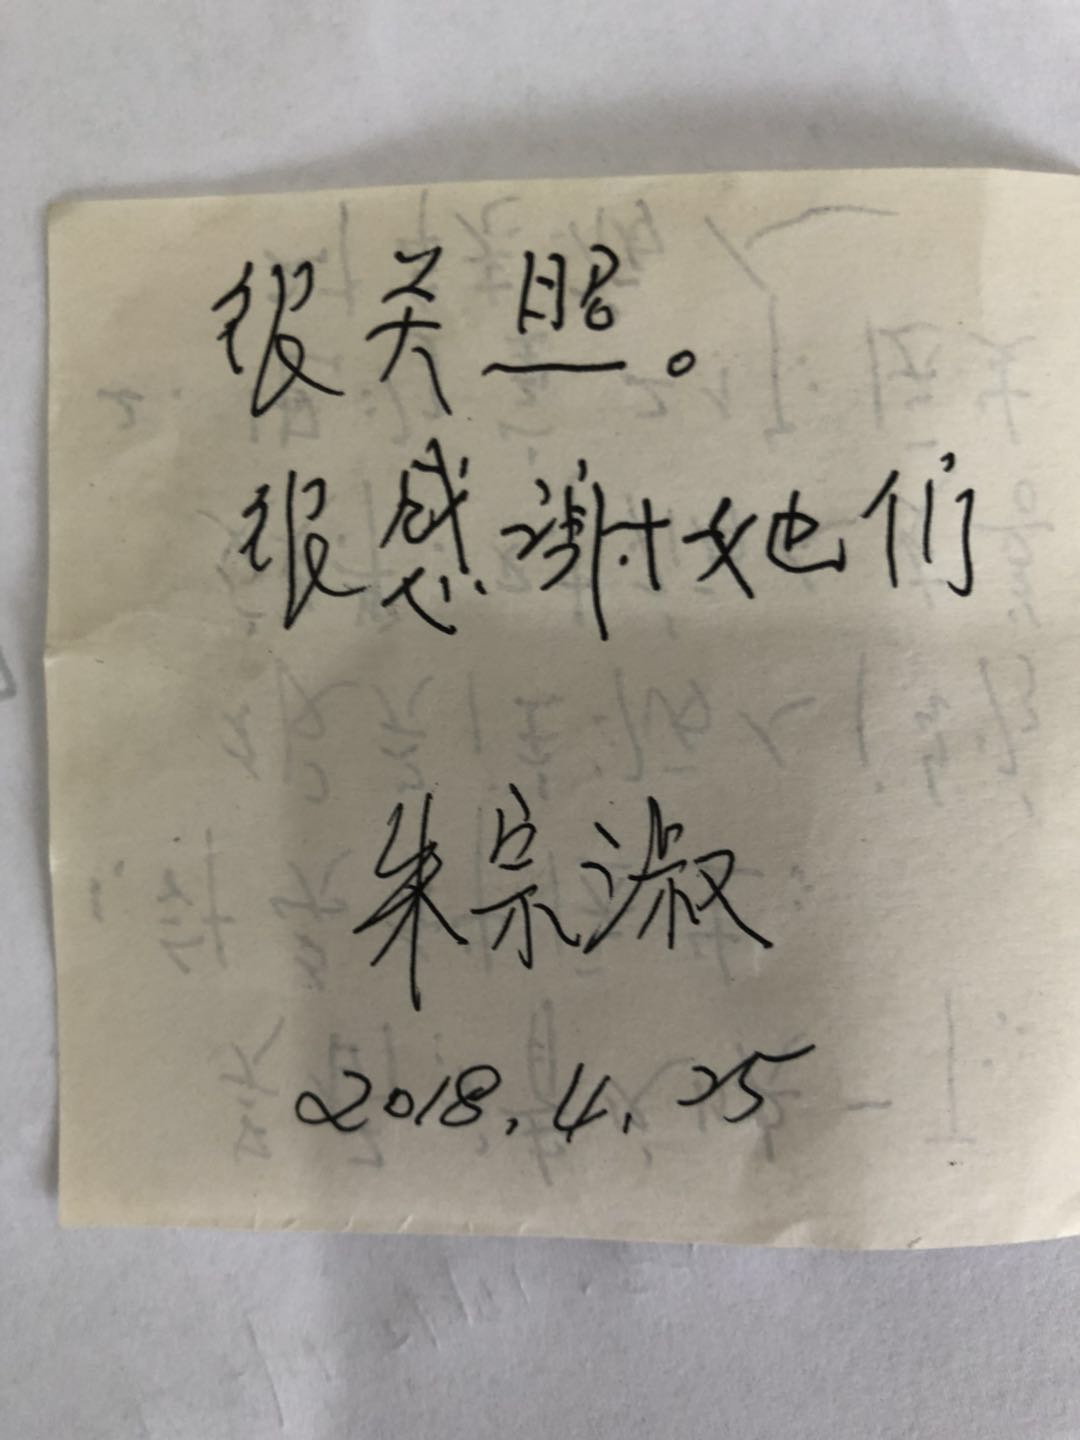 很关照。
很感谢她们
朱宗淑
2018.4.25